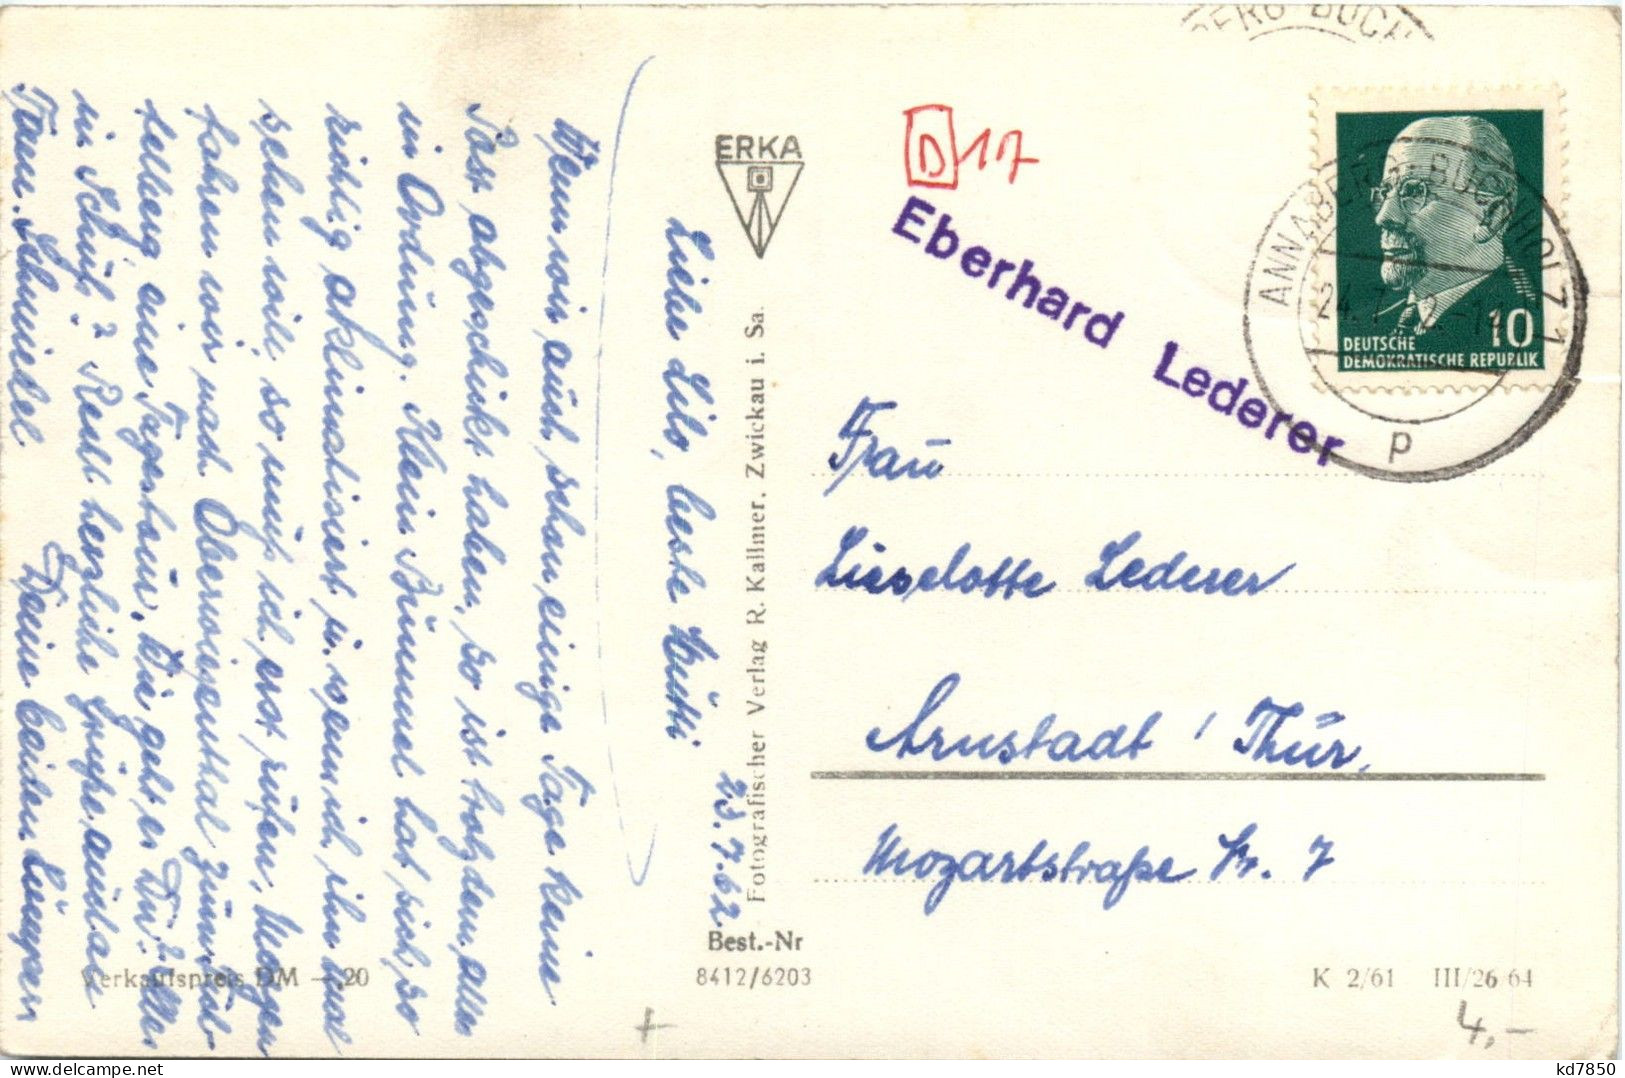 Liebe Lilo, beste Mutti
23.7.62
Wenn wir auch schon einige Tage keine
Post abgeschickt haben, so ist trotzdem alles
in Ordnung. Klein Brummel hat sich so
richtig aklimatisiert u. wenn ich ihn mal
sehen will, so muß ich erst rufen. Morgen
fahren wir nach Oberwiesenthal zum
eine Tagestour. Wie geht es Dir? Alles
im Schuß? Recht herzliche Grüße
Deine beiden
ERKA
Fotografischer Verlag R. Kallner. Zwickau i. Sa.
Best.-Nr
8412/6203
Verkaufspreis DM -,20
D 17
Eberhard Lederer
BERG-BUCH
ANNABERG-BUCHHOLZ 1
24.7. -14
p
10
DEUTSCHE
DEMOKRATISCHE REPUBLIK
Frau
Lieselotte Lederer
Arnstadt / Thür.
Mozartstraße Nr. 7
K 2/61 III/26 64
4,-
kd7850